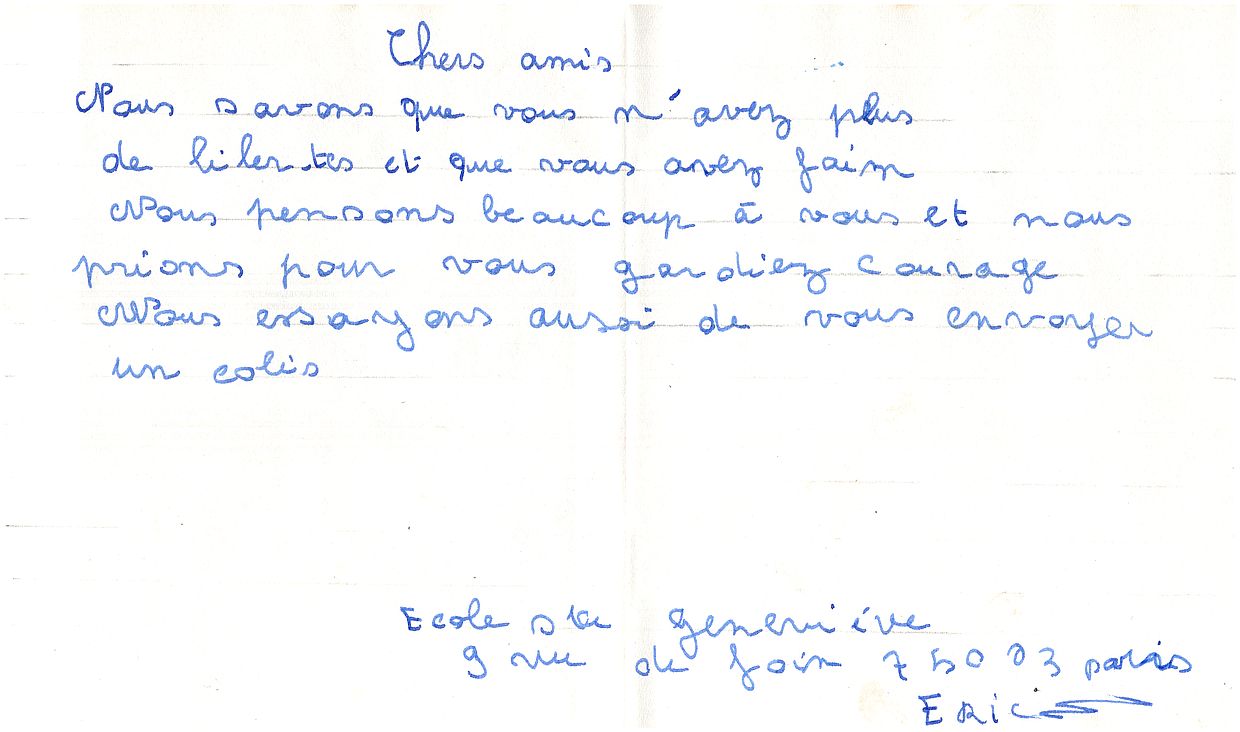 Chers amis
Nous savons que vous n'avez plus
de libertes et que vous avez faim
Nous pensons beaucoup à vous et nous
prions pour vous gardiez courage
Nous essayons aussi de vous envoyer
un colis
Ecole ste geneviéve
9 rue de foin 75003 paris
ERic